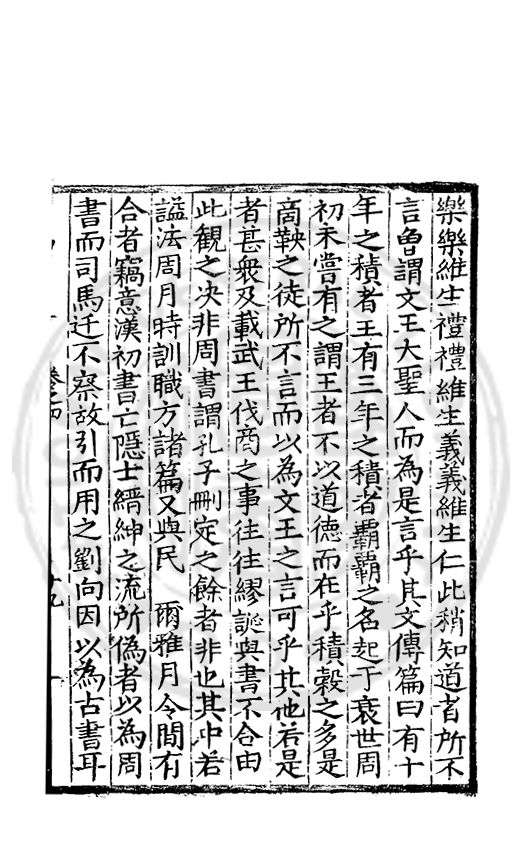 樂樂維生禮禮維生義義維生仁此稍知道者所不
言曾謂文王大聖人而為是言乎其文傳篇曰有十
年之積者王有三年之積者霸霸之名起于衰世周
初未嘗有之謂王者不以道德而在乎積穀之多是
商鞅之徒所不言而以為文王之言可乎其他若是
者甚衆及載武王伐商之事往往繆誕與書不合由
此觀之决非周書謂孔子刪定之餘者非也其中若
謚法周月時訓職方諸篇又與民 爾雅月令間有
合者竊意漢初書亡隱士縉紳之流所偽者以為周
書而司馬迁不察故引而用之劉向因以為古書耳